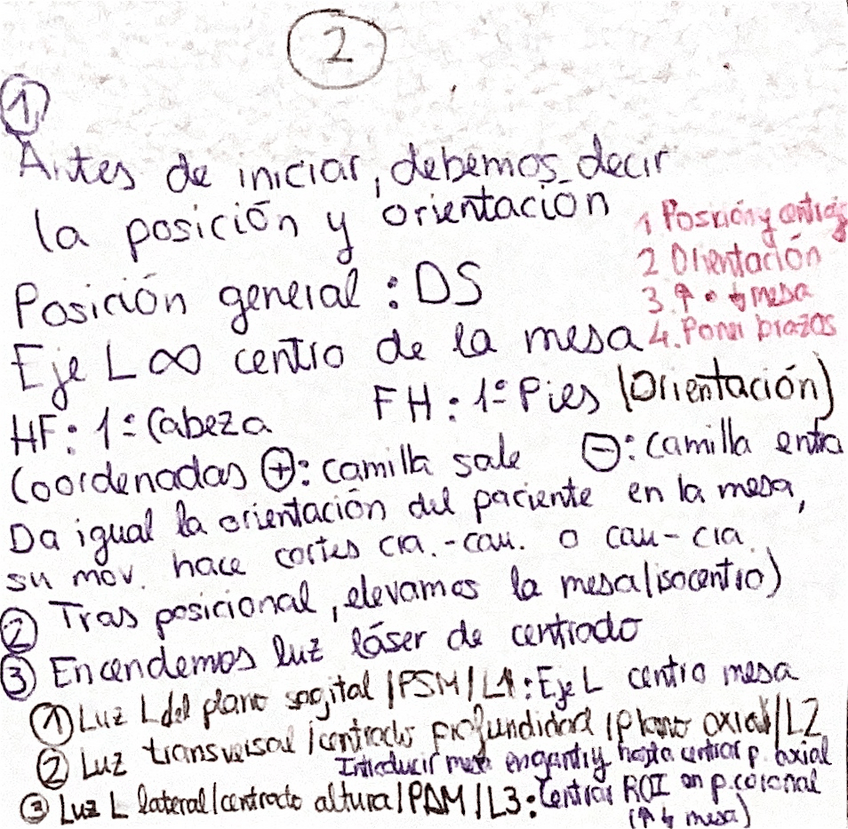 2
①
Antes de iniciar, debemos decir
la posición y orientación
1 Posición y centraje
2 Orientación
3. ↑ o ↓ mesa
4. Poner brazos
Posición general : DS
Eje L ∞ centro de la mesa
HF: 1º Cabeza FH: 1º Pies (Orientación)
Coordenadas ⊕: camilla sale ⊖: camilla entra
Da igual la orientación del paciente en la mesa,
su mov. hace cortes cra.-cau. o cau-cra.
② Tras posicional, elevamos la mesa (isocentro)
③ Encendemos luz láser de centrado
① Luz L del plano sagital / PSM / L1: Eje L centro mesa
② Luz transversal / centrado profundidad / Plano axial / L2
Introducir mesa en gantry hasta centrar p. axial
③ Luz L lateral / centrado altura / PDM / L3: Centrar ROI en p. coronal
(↑ ↓ mesa)